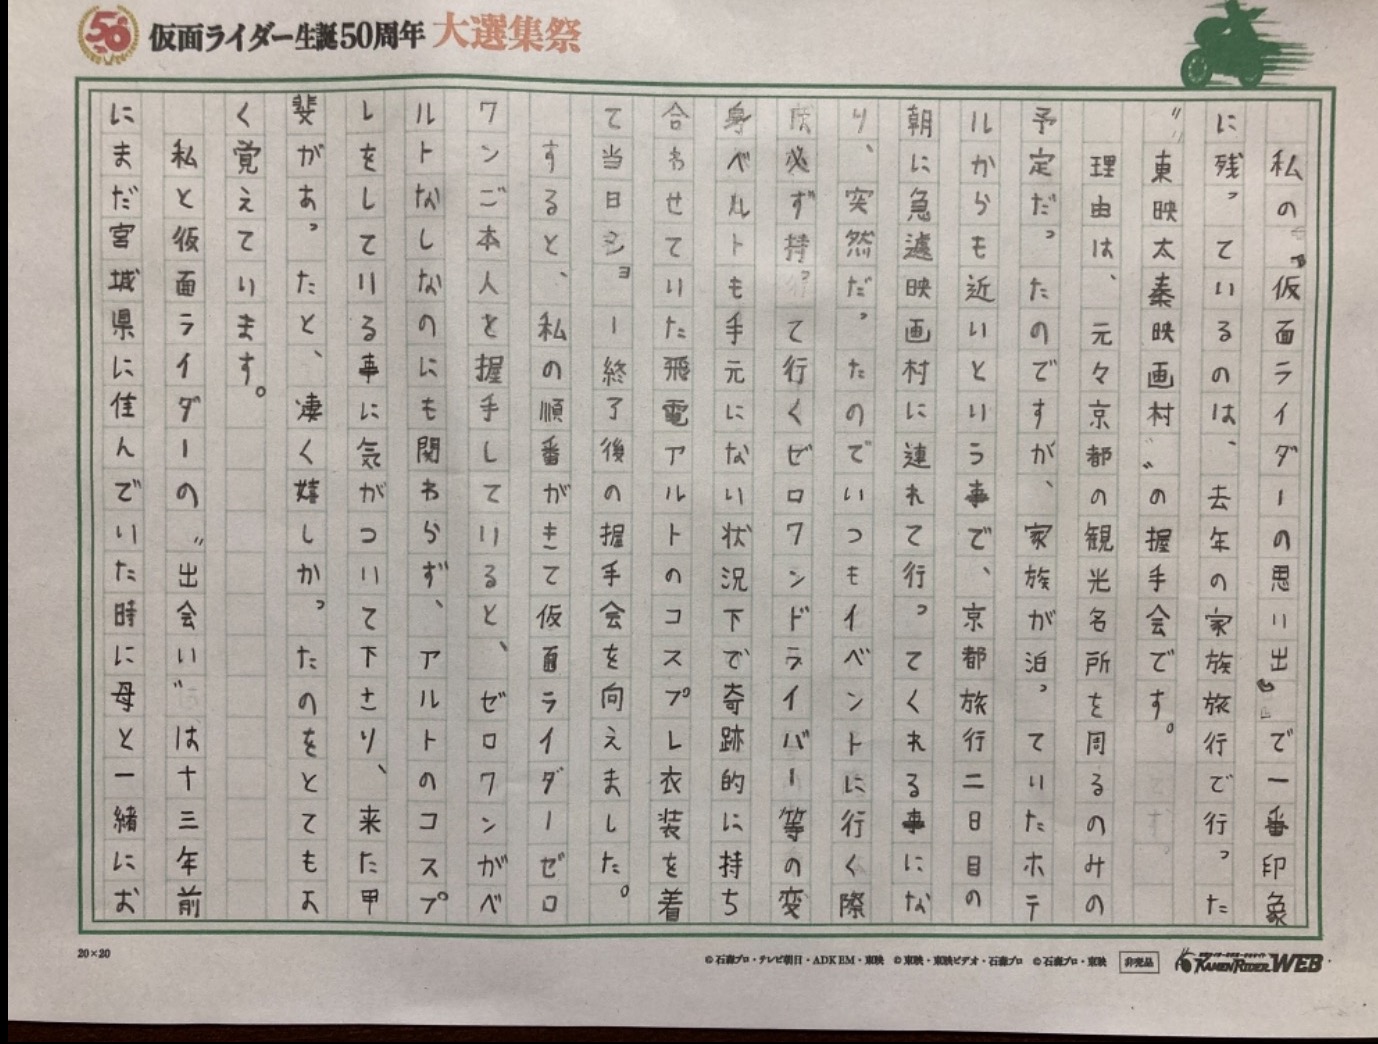 56 仮面ライダー生誕50周年 大選集祭
私の『仮面ライダーの思い出』で一番印象
に残っているのは、去年の家族旅行で行った
〝東映太秦映画村〟の握手会です。
理由は、元々京都の観光名所を周るのみの
予定だったのですが、家族が泊っていたホテ
ルからも近いという事で、京都旅行二日目の
朝に急遽映画村に連れて行ってくれる事にな
り、突然だったのでいつもイベントに行く際
必ず持って行くゼロワンドライバー等の変
身ベルトも手元にない状況下で奇跡的に持ち
合わせていた飛電アルトのコスプレ衣装を着
て当日ショー終了後の握手会を向えました。
すると、私の順番がきて仮面ライダーゼロ
ワンご本人と握手していると、ゼロワンがベ
ルトなしなのにも関わらず、アルトのコスプ
レをしている事に気がついて下さり、来た甲
斐があったと、凄く嬉しかったのをとてもよ
く覚えています。
私と仮面ライダーの〝出会い〟は十三年前
にまだ宮城県に住んでいた時に母と一緒にお
20×20
©石森プロ・テレビ朝日・ADK EM・東映 ©東映・東映ビデオ・石森プロ ©石森プロ・東映 非売品 KAMEN RIDER WEB